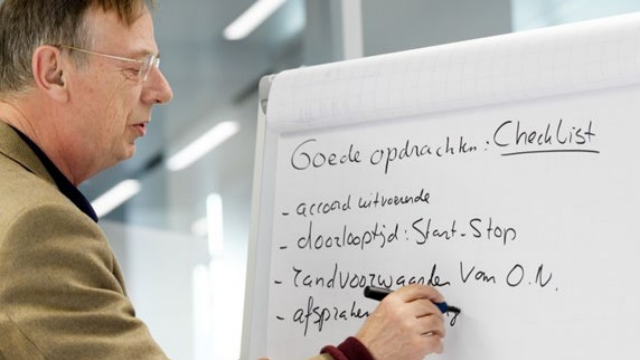 Goede opdrachten: CheckList
- accoord uitvoerende
- doorlooptijd: Start-Stop
- randvoorwaarden van O.N.
- afspraken